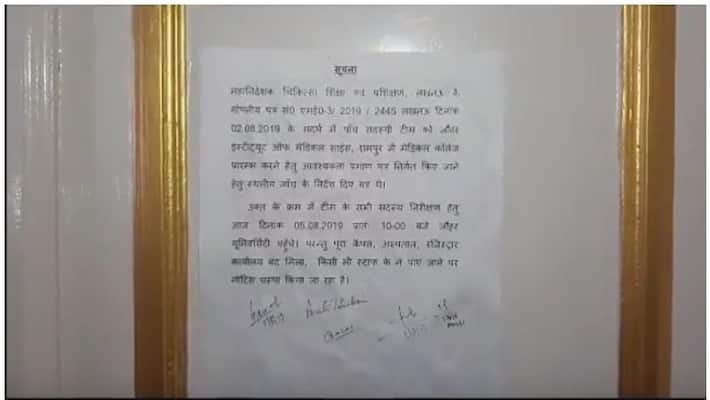 सूचना
महानिदेशक चिकित्सा शिक्षा एवं प्रशिक्षण, लखनऊ के
गोपनीय पत्र सं0 एमई0-3/ 2019 / 2445 लखनऊ दिनांक
02.08.2019 के संदर्भ में पाँच सदस्यी टीम को जौहर
इंस्टीट्यूट ऑफ मेडिकल साइंस, रामपुर में मेडिकल कॉलेज
प्रारम्भ करने हेतु आवश्यकता प्रमाण पत्र निर्गत किए जाने
हेतु स्थलीय जाँच के निर्देश दिए गए थे।
उक्त के क्रम में टीम के सभी सदस्य निरीक्षण हेतु
आज दिनांक 05.08.2019 प्रातः 10-00 बजे जौहर
यूनिवर्सिटी पहुँचे। परन्तु पूरा कैंपस, अस्पताल, रजिस्ट्रार
कार्यालय बंद मिला, किसी भी स्टाफ के न पाए जाने पर
नोटिस चस्पा किया जा रहा है।